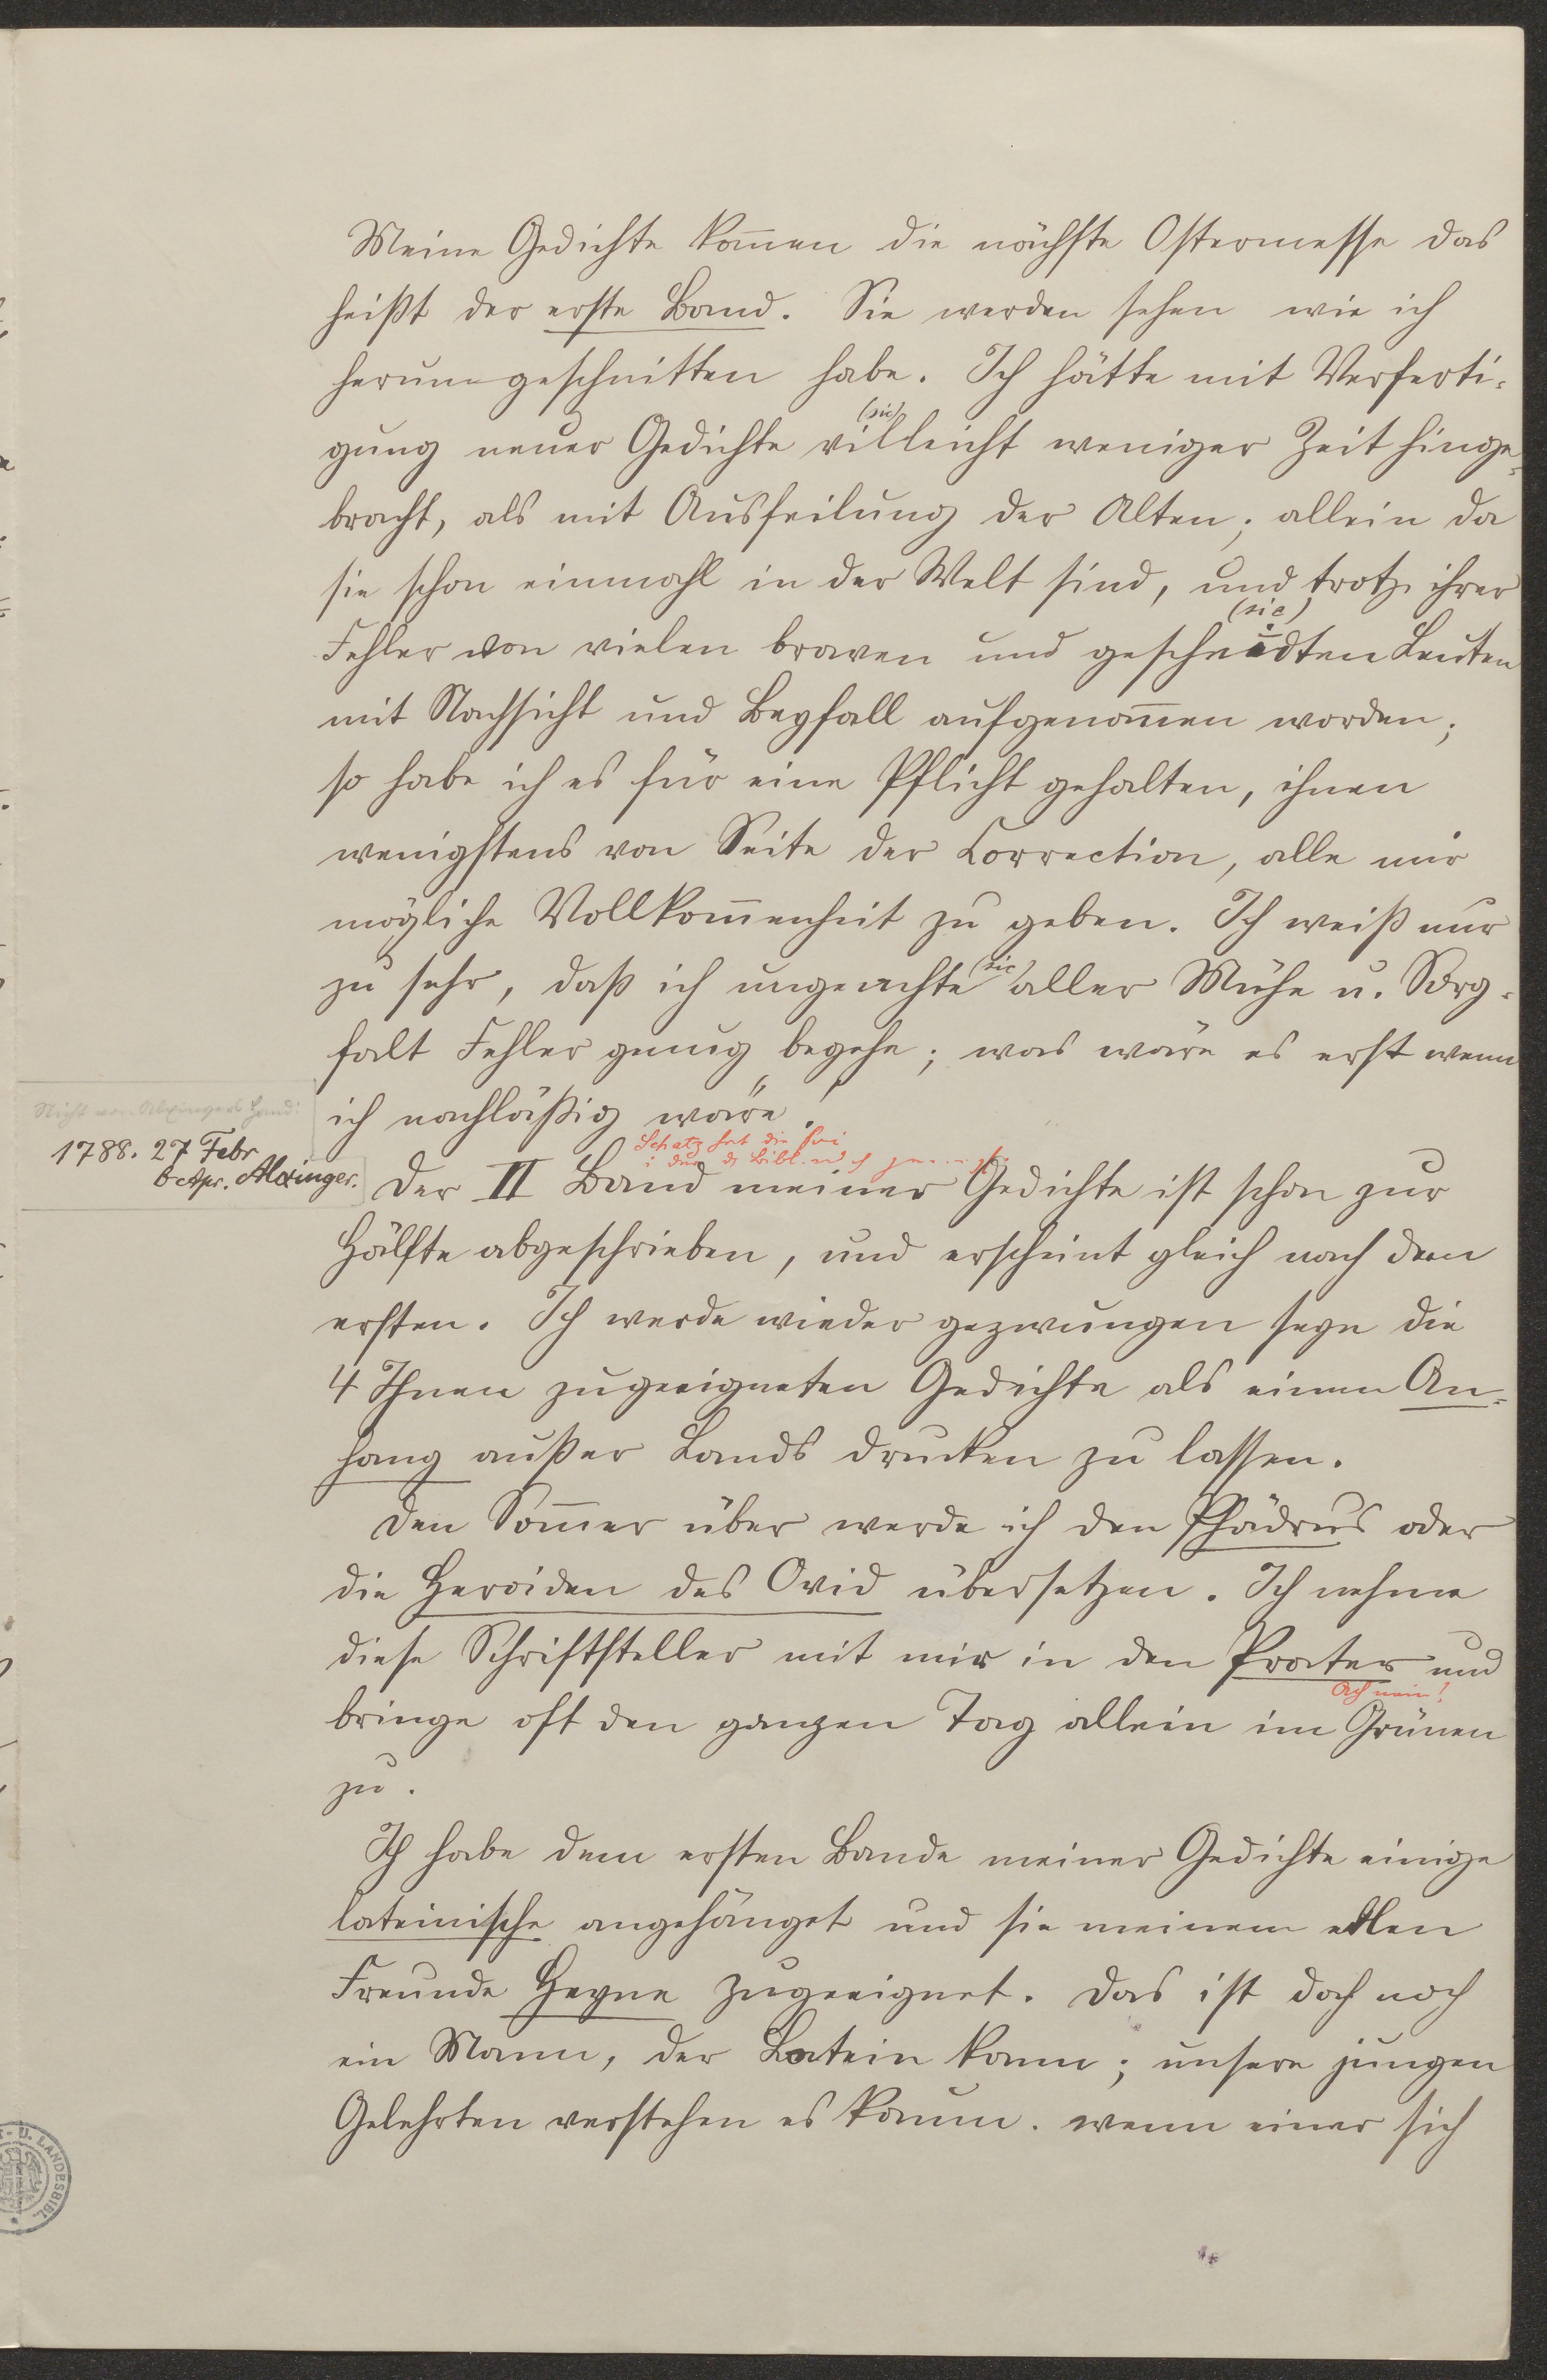 Meine Gedichte kom̄en die nächste Ostermesse das
heißt der erste Band. Sie werden sehen wie ich
herumgeschnitten habe. Ich hätte mit Verferti-
(sic)
gung neuer Gedichte villeicht weniger Zeit hinge-
bracht, als mit Ausfeilung der Alten; allein da
sie schon einmahl in der Welt sind, und trotz ihrer
(sic)
Fehler von vielen braven und gescheidten Leuten
mit Nachsicht und Beyfall aufgenom̄en worden;
so habe ich es für eine Pflicht gehalten, ihnen
wenigstens von Seite der Correction, alle mir
mögliche Vollkom̄enheit zu geben. Ich weiß nur
zu sehr, daß ich ungeachte (sic) aller Mühe u. Sorg-
falt Fehler genug begehe; was wäre es erst wenn
ich nachläßig wäre!
Nicht von Alxingers Hand:
1788. 27 Febr
6 Apr. Alxinger.
Schatz hat die
Bibl.
Der II Band meiner Gedichte ist schon zur
Hälfte abgeschrieben, und erscheint gleich nach dem
ersten. Ich werde wieder gezwungen seyn die
4 Ihnen zugeeigneten Gedichte als einen An-
hang außer Lands drucken zu lassen.
Den Som̄er über werde ich den Phädrus oder
die Heroiden des Ovid übersetzen. Ich nehme
diese Schriftsteller mit mir in den Prater und
Ach nein!
bringe oft den ganzen Tag allein im Grünen
zu.
Ich habe dem ersten Bande meiner Gedichte einige
lateinische angehänget und sie meinem edlen
Freunde Heyne zugeeignet. Das ist doch noch
ein Mann, der Latein kann; unsere jungen
Gelehrten verstehen es kaum. wenn einer sich
U. LANDESBIBL.